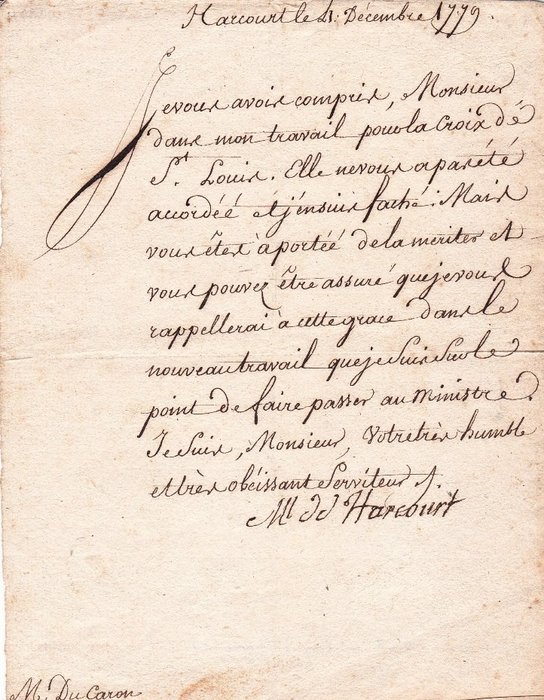 Harcourt le 21. Décembre 1779.
Je vous avois compris, Monsieur
dans mon travail pour la Croix de
St. Louis. Elle ne vous a pas été
accordéé et j'en suis faché. Mais
vous êtes à portéé de la meriter et
vous pouvez être assuré que je vous
rappellerai à cette grace dans le
nouveau travail que je suis sur le
point de faire passer au ministre.
Je suis, Monsieur, Votre très humble
et très obéissant Serviteur
Ml. d'Harcourt
Mr. Du Caron